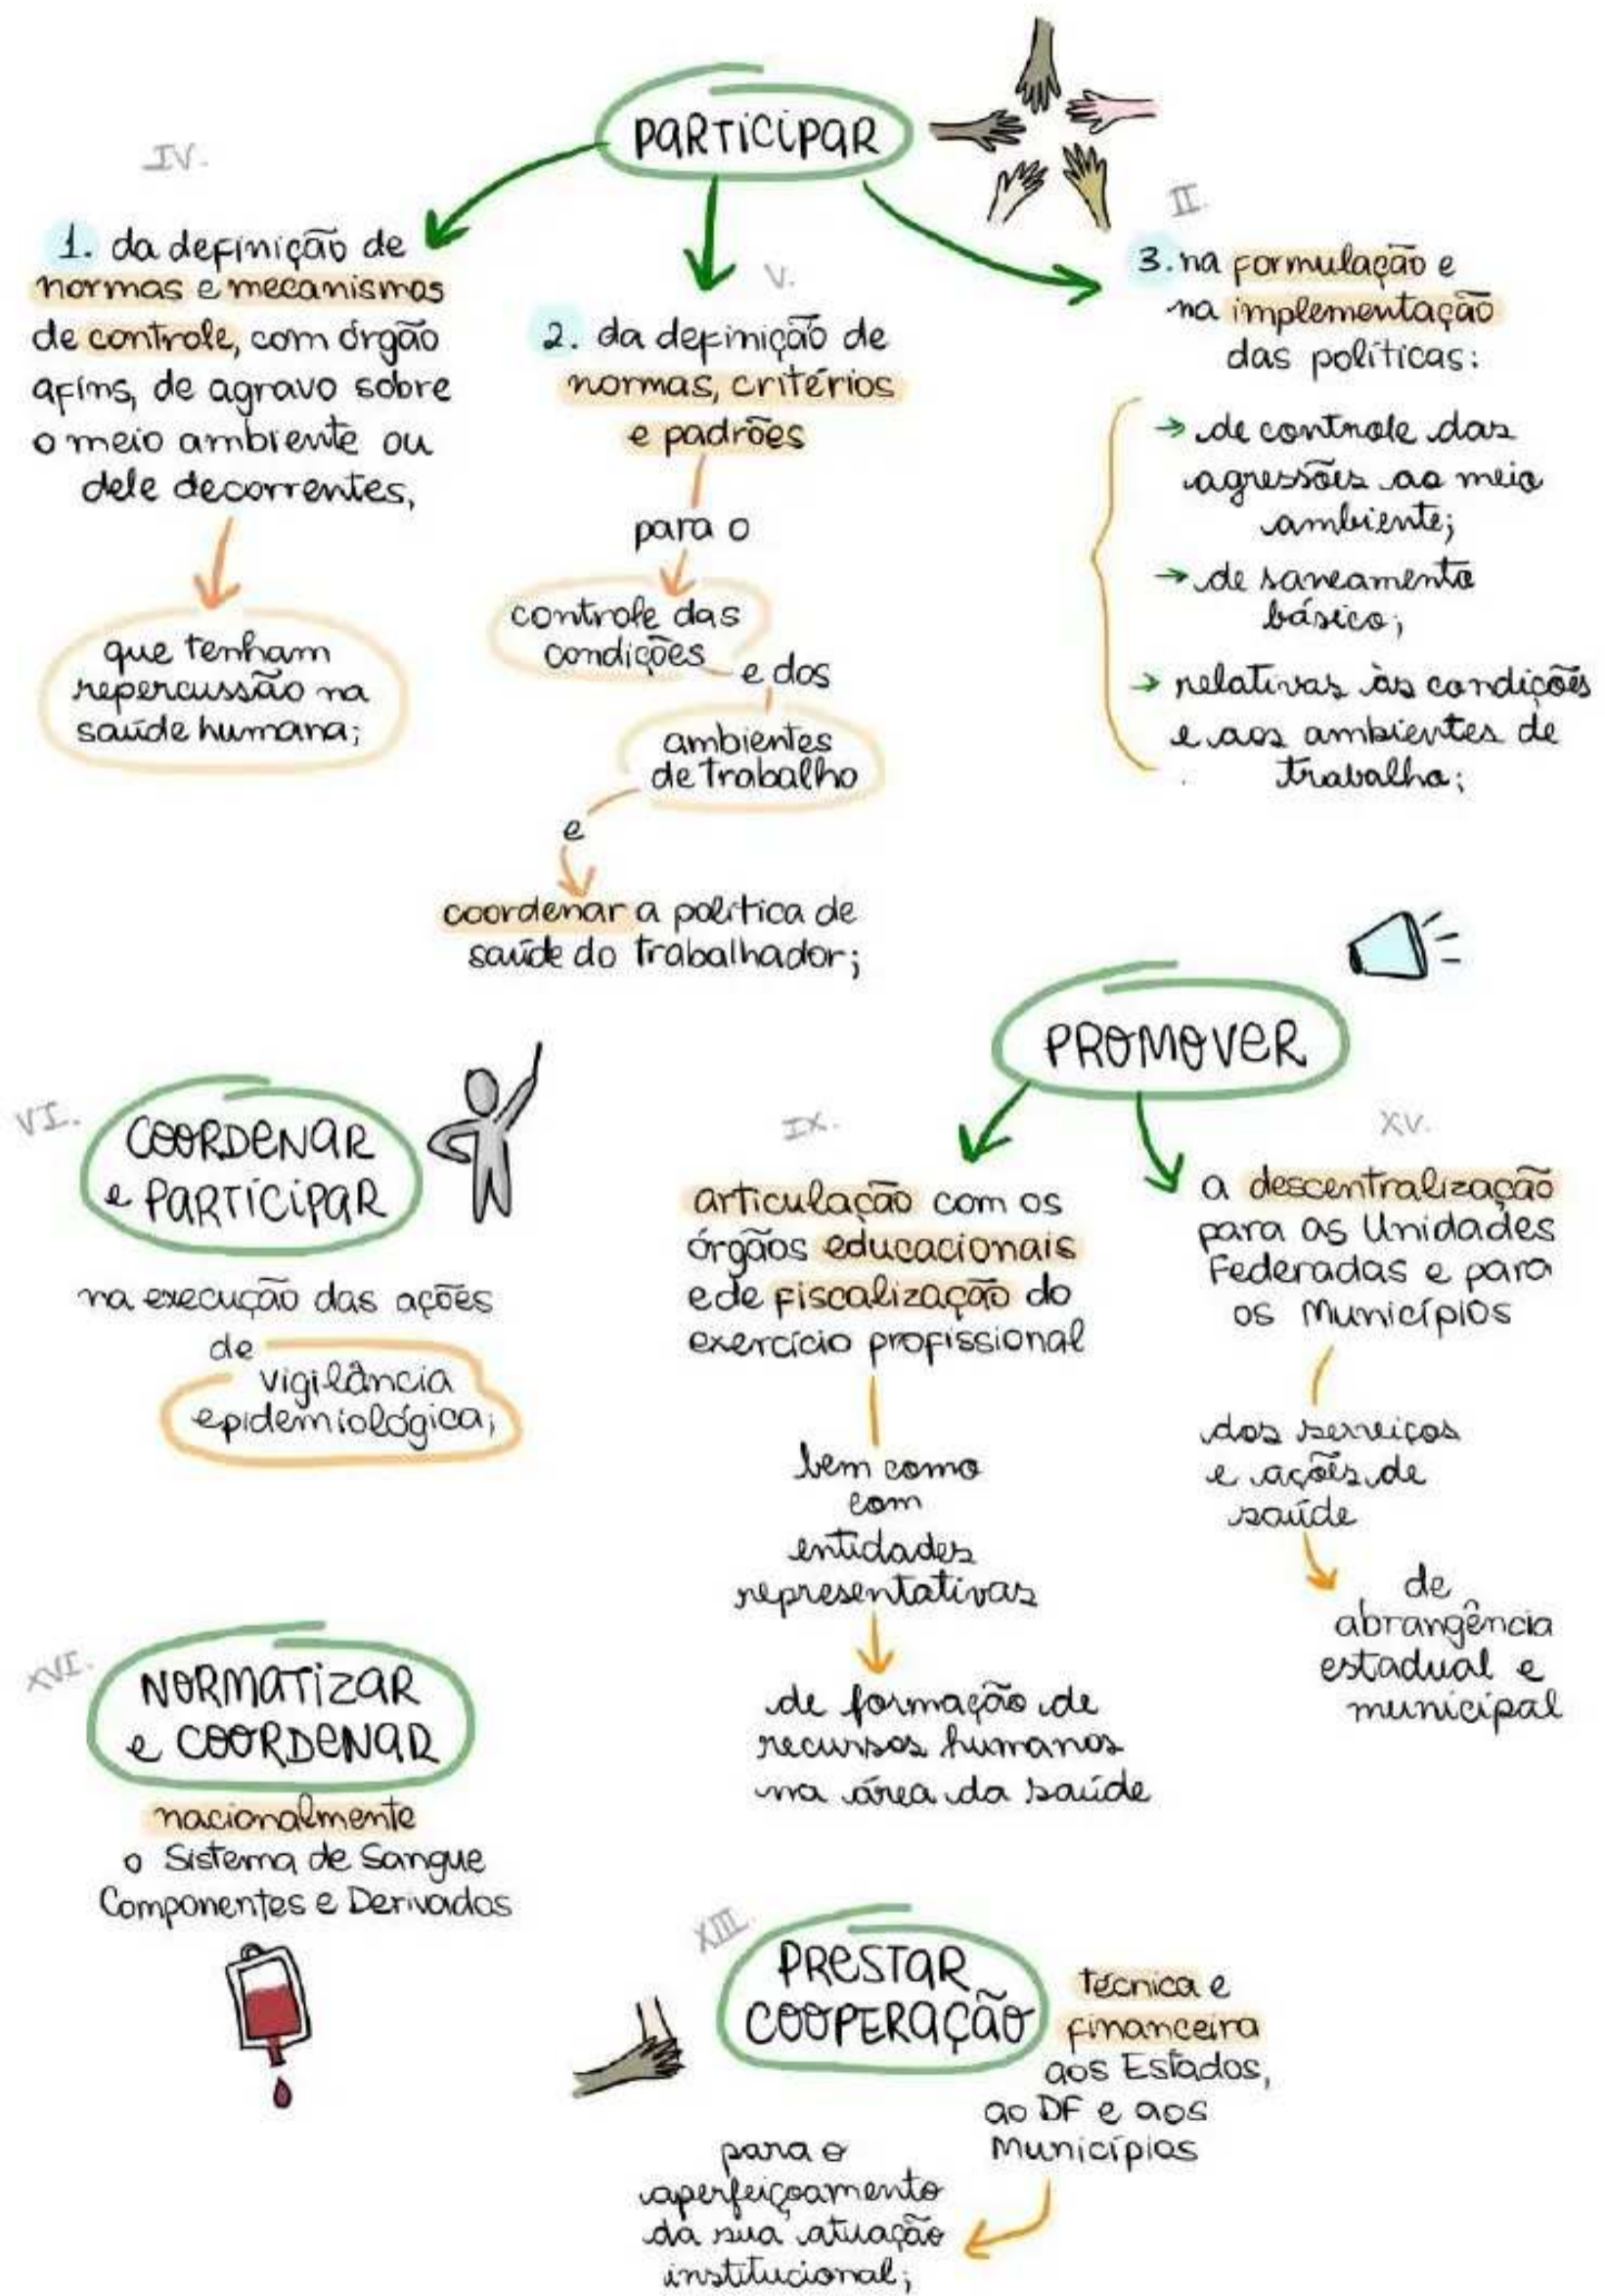 PARTICIPAR
IV.
1. da definição de
normas e mecanismos
de controle, com órgão
afins, de agravo sobre
o meio ambiente ou
dele decorrentes,
que tenham
repercussão na
saúde humana;
V.
2. da definição de
normas, critérios
e padrões
para o
controle das
condições
e dos
ambientes
de trabalho
e
coordenar a política de
saúde do trabalhador;
II.
3. na formulação e
na implementação
das políticas:
→ de controle das
agressões ao meio
ambiente;
→ de saneamento
básico;
→ relativas às condições
e aos ambientes de
trabalho;
VI.
COORDENAR
e PARTICIPAR
na execução das ações
de
vigilância
epidemiológica;
PROMOVER
IX.
articulação com os
órgãos educacionais
e de fiscalização do
exercício profissional
bem como
com
entidades
representativas
de formação de
recursos humanos
na área da saúde
XV.
a descentralização
para as Unidades
Federadas e para
os Municípios
dos serviços
e ações de
saúde
de
abrangência
estadual e
municipal
XVI.
NORMATIZAR
e COORDENAR
nacionalmente
o Sistema de Sangue
Componentes e Derivados
XIII.
PRESTAR
COOPERAÇÃO
técnica e
financeira
aos Estados,
ao DF e aos
Municípios
para o
aperfeiçoamento
da sua atuação
institucional;